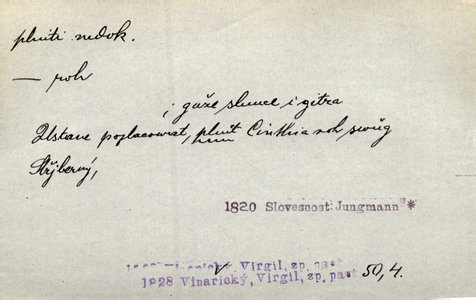 plniti nedok.
— roh
; gako slunce i gitra
Ustane pozlacowat, plnit Cinthia roh swůg
Střjberný,
1820 Slovesnost Jungmann *
Virgil, zp. past
1828 Vinařický, Virgil, zp. past 50, 4.